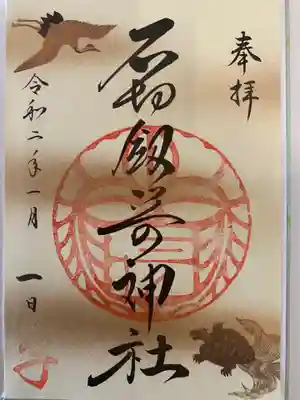 奉拝
石切劔箭神社
令和二年一月一日